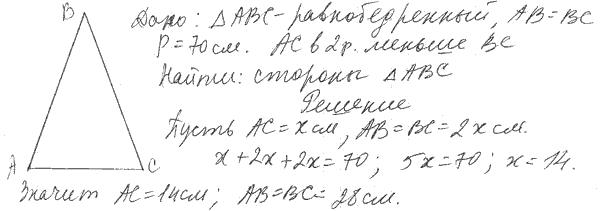 B
Дано: △ABC - равнобедренный, AB = BC
P = 70 см. AC в 2 р. меньше BC
Найти: стороны △ABC
Решение
Пусть AC = x см, AB = BC = 2x см.
x + 2x + 2x = 70; 5x = 70; x = 14.
A C
Значит AC = 14 см; AB = BC = 28 см.